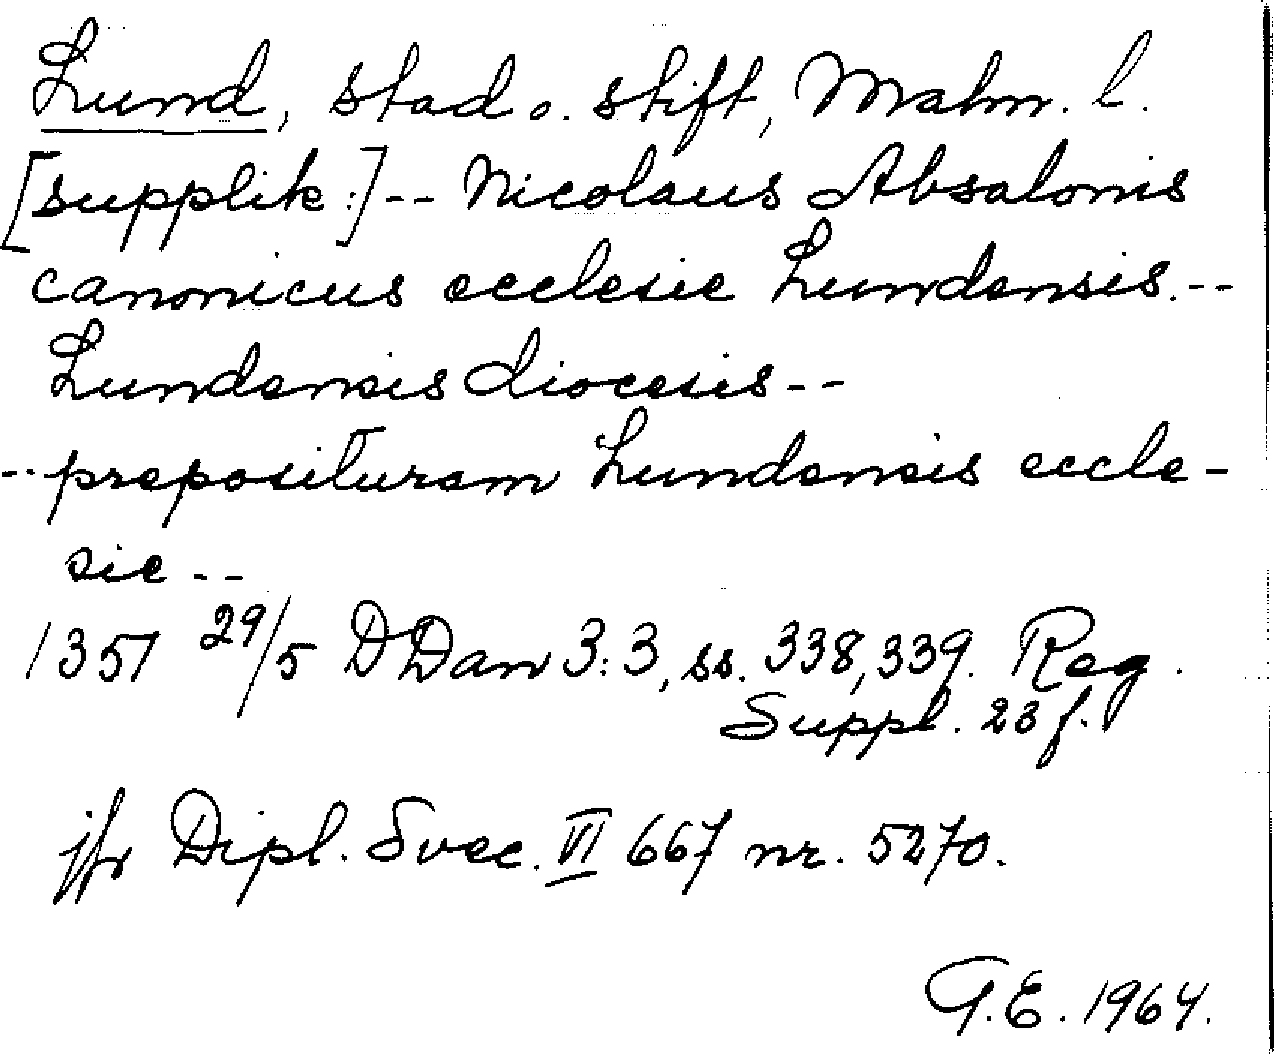 Lund, stad o. stift, Malm. l.
[supplik:]-- Nicolaus Absalonis
canonicus ecclesie Lundensis.--
Lundensis diocesis--
--preposituram Lundensis eccle-
sie--
1351 29/5 DDan 3:3, ss. 338,339. Reg.
Suppl. 23 f.
jfr Dipl. Svec. VI 667 nr. 5270.
G.E. 1964.